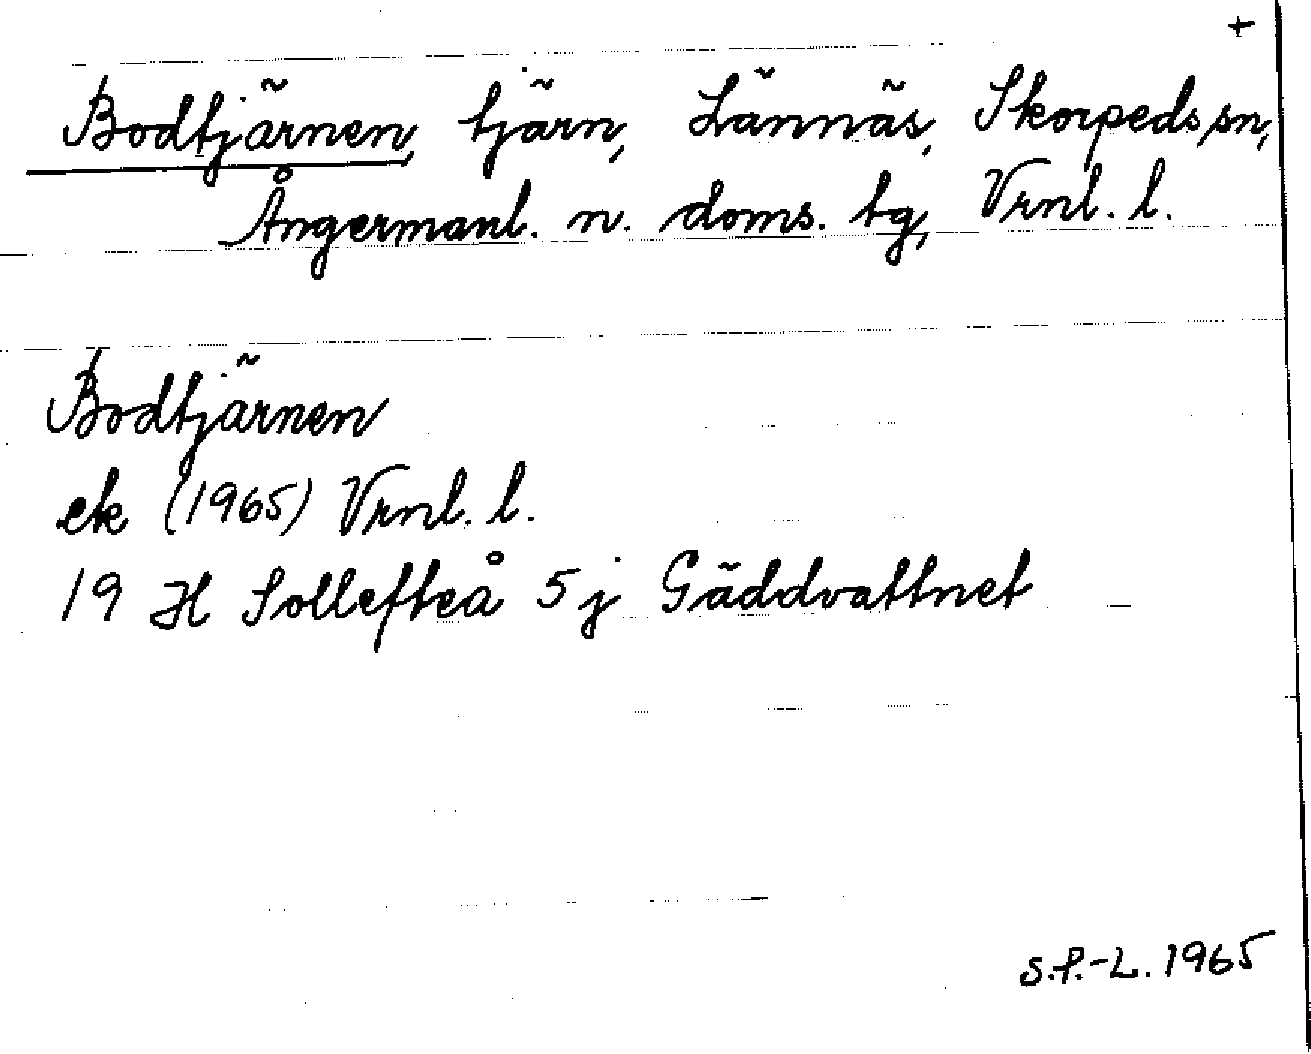 +
Bodtjärnen, tjärn, Lännäs, Skorpeds sn,
Ångermanl. n. doms. tg, Vrnl. l.
Bodtjärnen
ek (1965) Vrnl. l.
19 H Sollefteå 5 j Gäddvattnet
S.P.-L. 1965